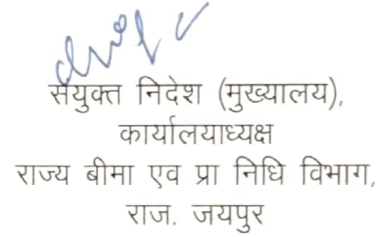 संयुक्त निदेश (मुख्यालय),
कार्यालयाध्यक्ष
राज्य बीमा एव प्रा निधि विभाग,
राज. जयपुर